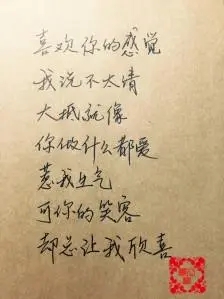 喜欢你的感觉
我说不太清
大抵就像
你做什么都爱
惹我生气
可你的笑容
却总让我欣喜